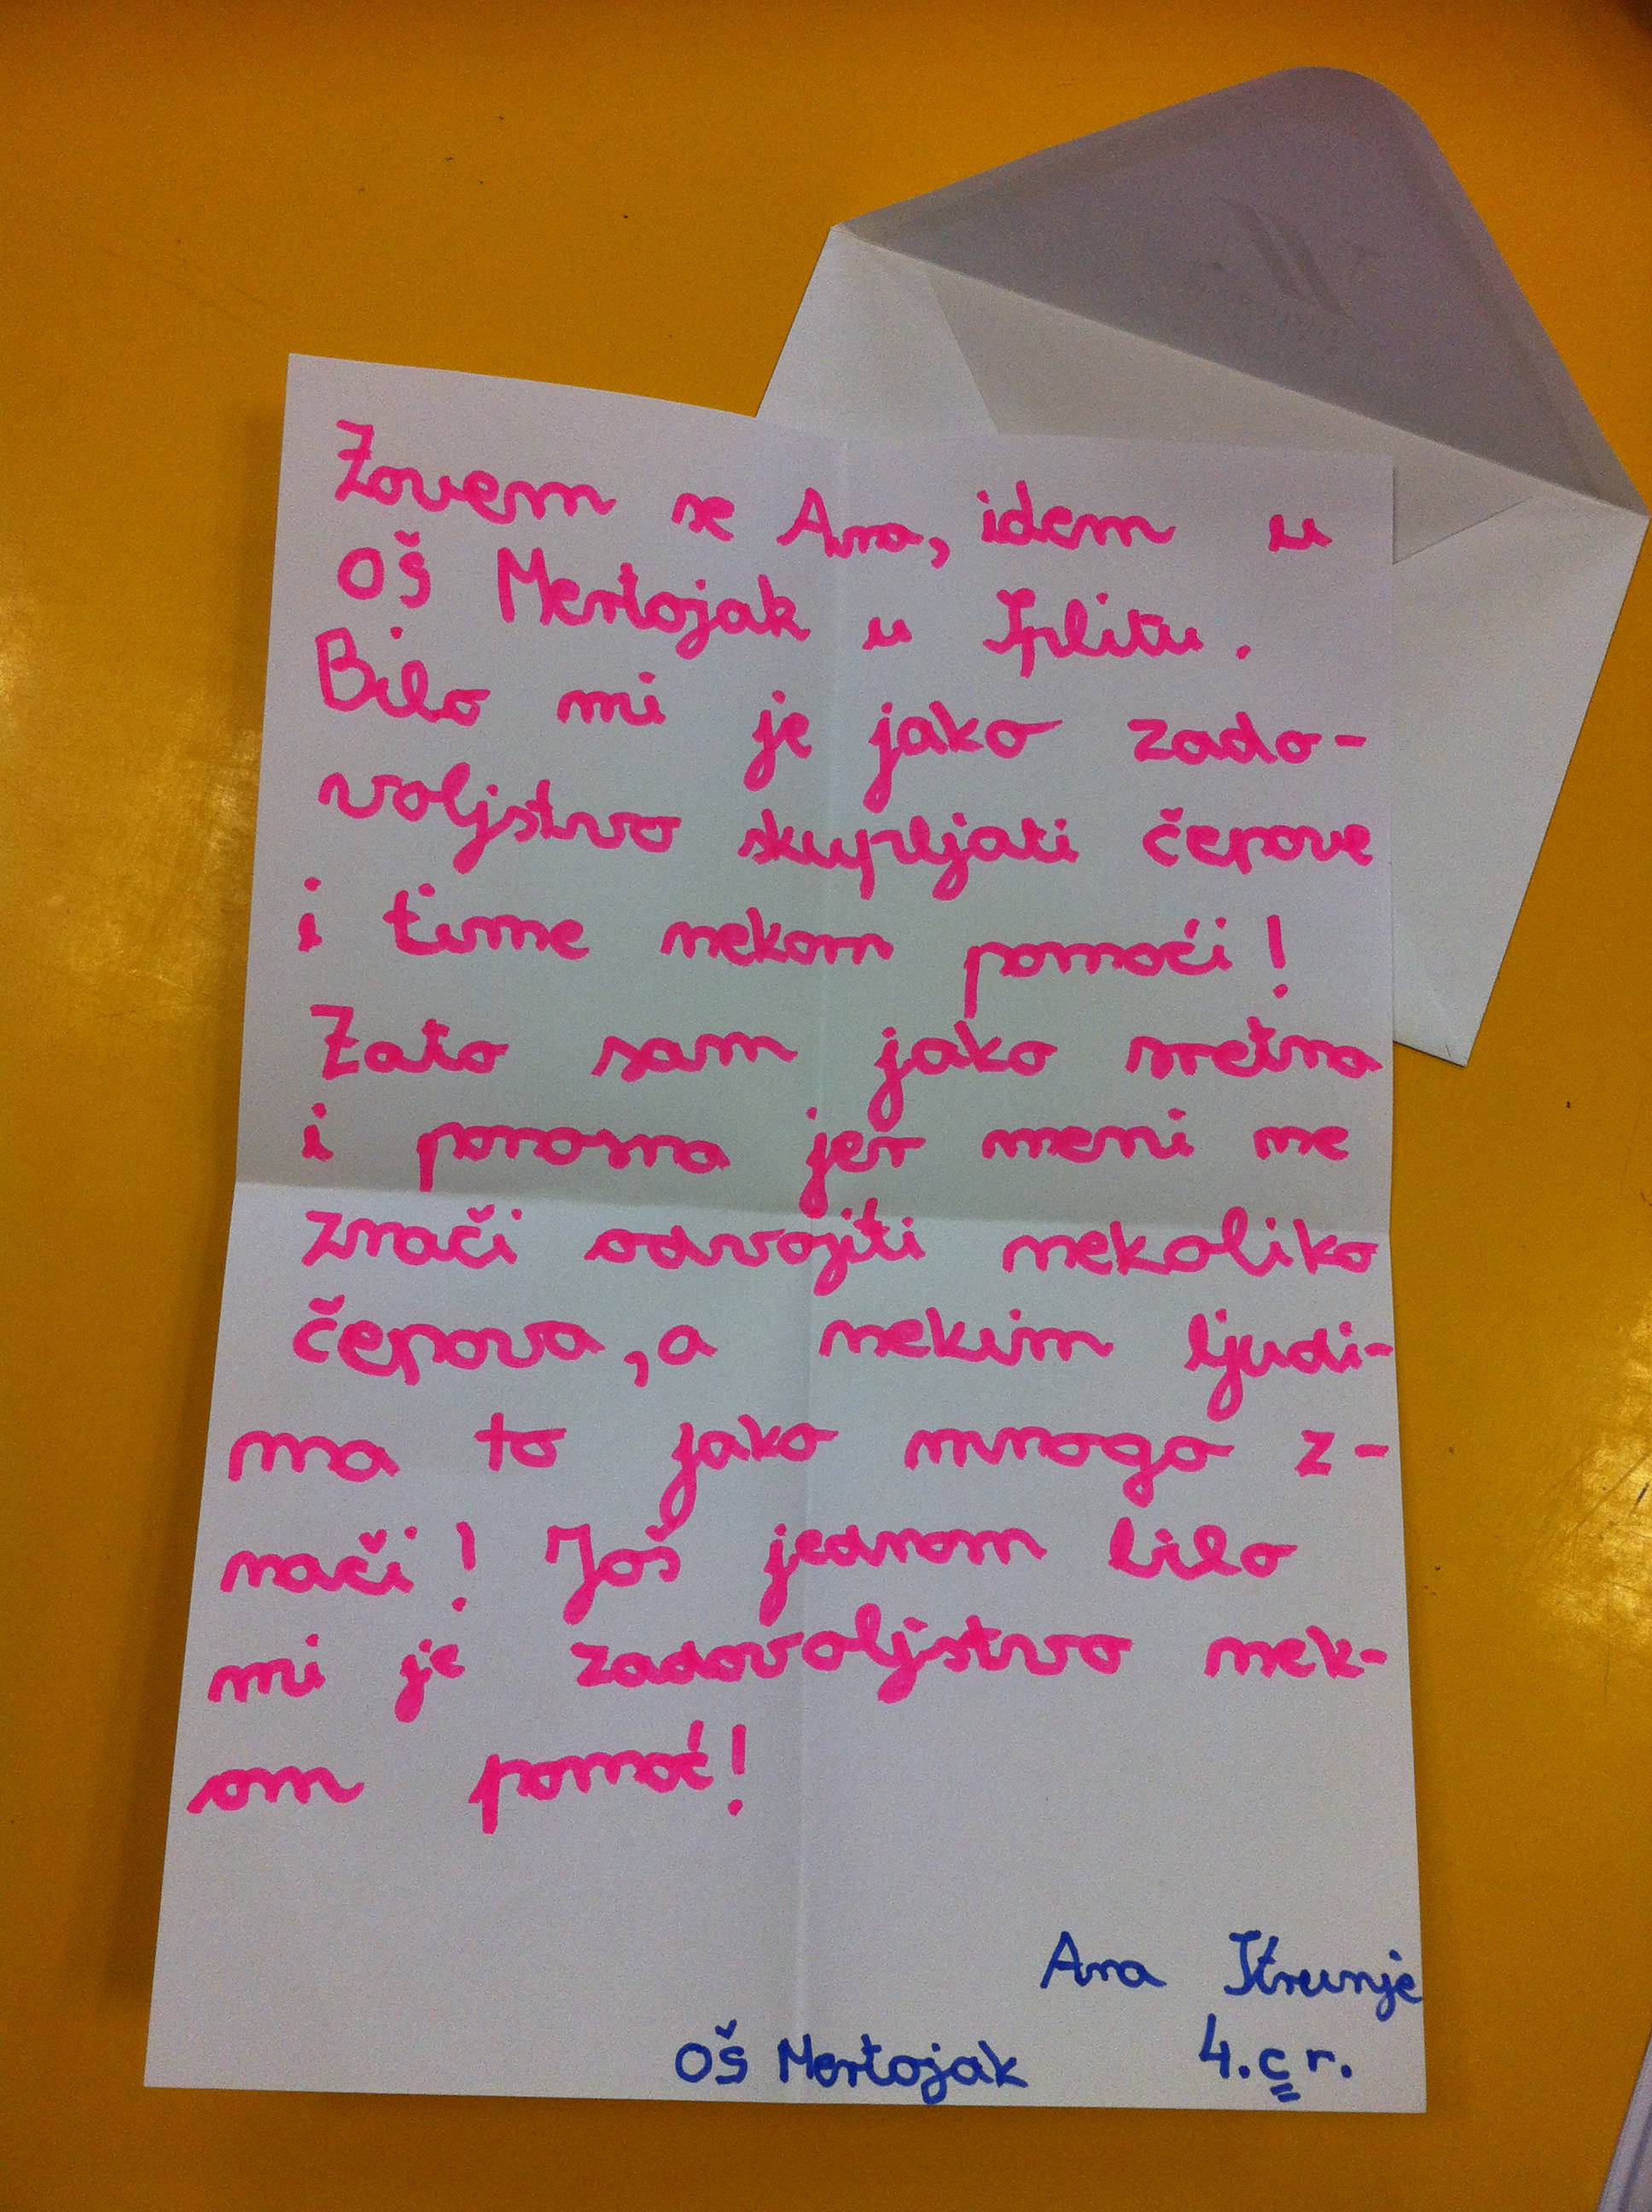 Zovem se Ana, idem u
OŠ Mertojak u Splitu.
Bilo mi je jako zado-
voljstvo skupljati čepove
i time nekom pomoći!
Zato sam jako sretna
i ponosna jer meni ne
znači odvojiti nekoliko
čepova, a nekim ljudi-
ma to jako mnogo z-
nači! Još jednom bilo
mi je zadovoljstvo nek-
om pomoć!
Ana Strunje
OŠ Mertojak 4.c r.